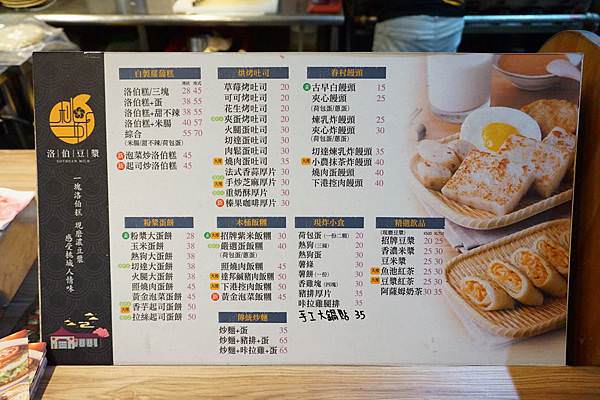 洛伯豆漿
SOYBEAN MILK
一塊洛伯糕 現磨濃豆漿
感受桃城人情味
自製蘿蔔糕
洛伯糕/三塊 28 45
洛伯糕+蛋 38 55
洛伯糕+甜不辣 38 55
洛伯糕+米腸 40 57
綜合 55 70
(米腸/甜不辣/荷包蛋)
泡菜炒洛伯糕 45
起司炒洛伯糕 45
烘烤吐司
草莓烤吐司 20
可可烤吐司 20
花生烤吐司 20
夾蛋吐司 25
(荷包蛋/蔥蛋)
火腿蛋吐司 30
切達蛋吐司 30
肉鬆蛋吐司 30
燒肉蛋吐司 35
法式香蒜厚片 30
手炒芝麻厚片 30
重奶酥厚片 30
榛果咖啡厚片 30
眷村饅頭
古早白饅頭 15
夾心饅頭 25
(荷包蛋/蔥蛋)
煉乳炸饅頭 25
夾心炸饅頭 30
(荷包蛋/蔥蛋)
切達煉乳炸饅頭 35
小農抹茶炸饅頭 40
燒肉蛋饅頭 40
下港控肉饅頭 40
粉漿蛋餅
粉漿大蛋餅 28
玉米蛋餅 38
熱狗大蛋餅 38
切達大蛋餅 38
火腿大蛋餅 38
照燒肉蛋餅 45
黃金泡菜蛋餅 45
香芋起司蛋餅 50
拉絲起司蛋餅 50
木桶飯糰
招牌紫米飯糰 30
嚴選蛋飯糰 40
(荷包蛋/蔥蛋)
照燒肉飯糰 45
達邦鹹豬肉飯糰 50
下港控肉飯糰 50
黃金泡菜飯糰 50
傳統炒麵
炒麵+蛋 35
炒麵+豬排+蛋 65
炒麵+咔拉雞+蛋 65
現炸小食
荷包蛋(一份二顆) 20
熱狗(三條) 20
熱狗蛋 30
薯條 30
薯餅(一份) 30
香雞塊(四塊) 30
豬排厚片 35
咔拉雞腿排 35
手工大鍋貼 35
精選飲品
(現磨豆漿)
招牌豆漿 20 25
香濃米漿 25 30
豆米漿 25 30
魚池紅茶 25 30
豆漿紅茶 25 30
阿薩姆奶茶 25 30